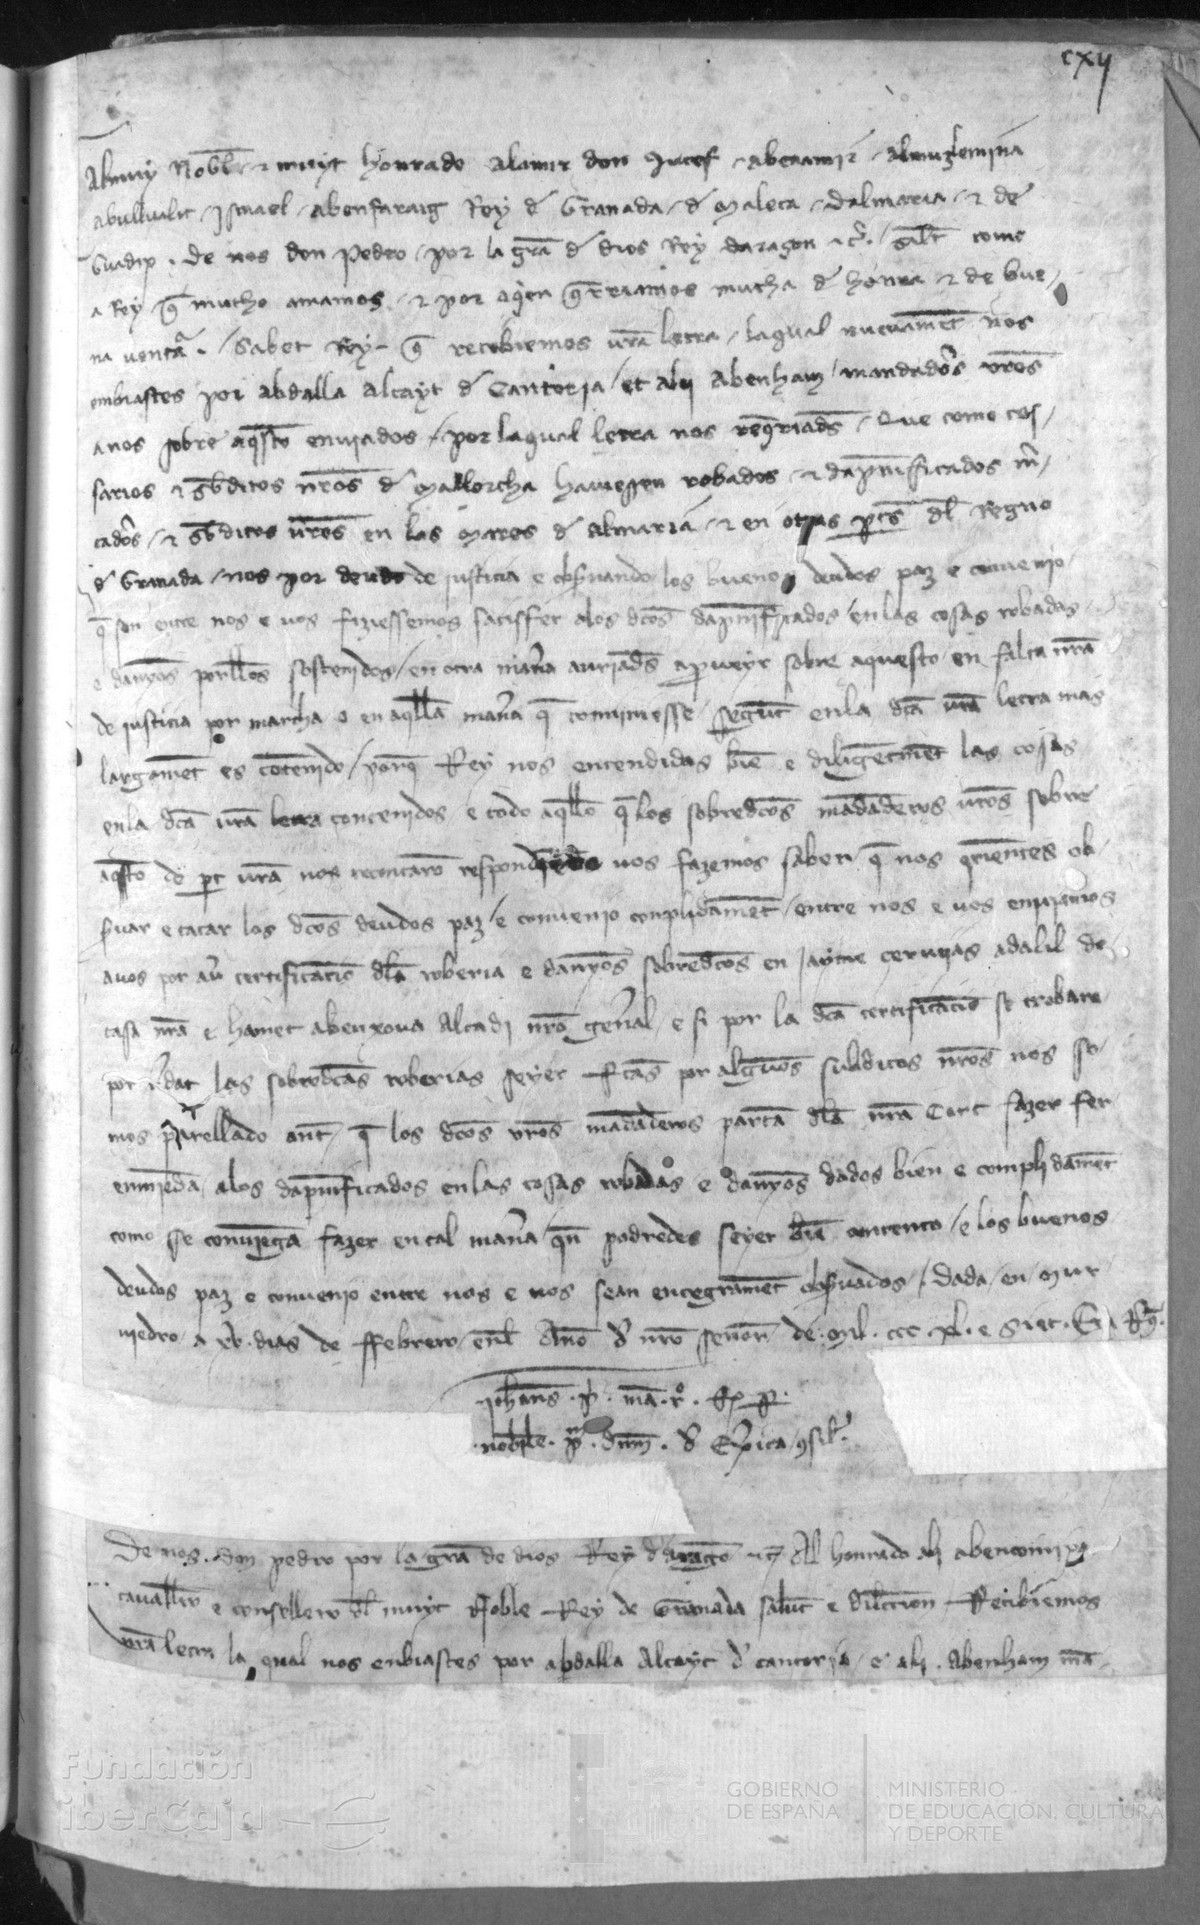 cxij
Al muy Noble ⁊ muyt honrado Alamir don Juçef Abenamir Almuzlemina
abulhulit Ismael Abenfaraig Rey de Granada de Maleca Dalmaria ⁊ de
Guadix. De nos don Pedro por la gra de dios Rey daragon ⁊c. Salut como
a Rey q mucho amamos ⁊ por qien qrriamos mucha de honra ⁊ de bue
na ventra. Sabet Rey q recebiemos vra letra laqual nuevament nos
embiastes por abdalla Alcayt de Cantoria et ali Abenham mandadros vros
a nos sobre aqsto enviados por laqual letra nos reqriads Que como cos
sarios ⁊ sbditos nros de Mallorcha haviessen robados ⁊ dapnificados mr
cadrs ⁊ sbditos vros en las mares de almaria ⁊ en otras pts dl Regno
de Granada nos por deudo de justicia e obsuando los buenos deudos paz e convenio
q son entre nos e vos fiziessemos satisffer alos dcos dapnificados en las cosas robadas
e danyos porllos sostenidos en otra manra auriads a pveyr sobre aquesto en falta nra
de justicia por marcha o en aqlla manra q conviniesse segunt enla dca vra letra mas
largament es contenido porq Rey nos entendidas bie e diligentment las cosas
enla dca vra letra contenidos e todo aqllo q los sobredcos madaderos vros sobre
aqsto de pt vra nos recontaro vos fazemos saber q nos qrientes ob
suar e catar los dcos deudos paz e convenio complidament entre nos e vos enviamos
a vos por aur certificacio dla roberia e danyos sobredcos en Jayme adalil de
casa nra e hamet abenxova Alcadi nro genral e si por la dca certificacio se trobare
por vrdat las sobredcas roberias seyer fcas por algunos subditos nros nos so
mos parellado ant q los dcos vros madaderos parta dla nra Cort fazer fer
enmieda alos dapnificados en las cosas robadas e danyos dados bien e complidament
como se convienga fazer en tal manra qn podredes seyer bie contento e los buenos
deudos paz e convenio entre nos e vos sean entegrament obsuados. Dada en Mur
viedro a xv. dias de ffebrero enl Ano d nro senor de. Mil. ccc. xl. e Siet.
Johans. p. ma. r.
noble. p. dnm. d Exica
De nos. don pedro por la gra de dios Rey darago ⁊c Al honrado ali
cavallro e consellero dl muyt Noble Rey de Granada salut e dileccion Recibiemos
vra letra la qual nos enbiastes por abdalla Alcayt d cantoria e ali. Abenham ma
Fundación
iberCaja
GOBIERNO
DE ESPAÑA
MINISTERIO
DE EDUCACIÓN, CULTURA
Y DEPORTE